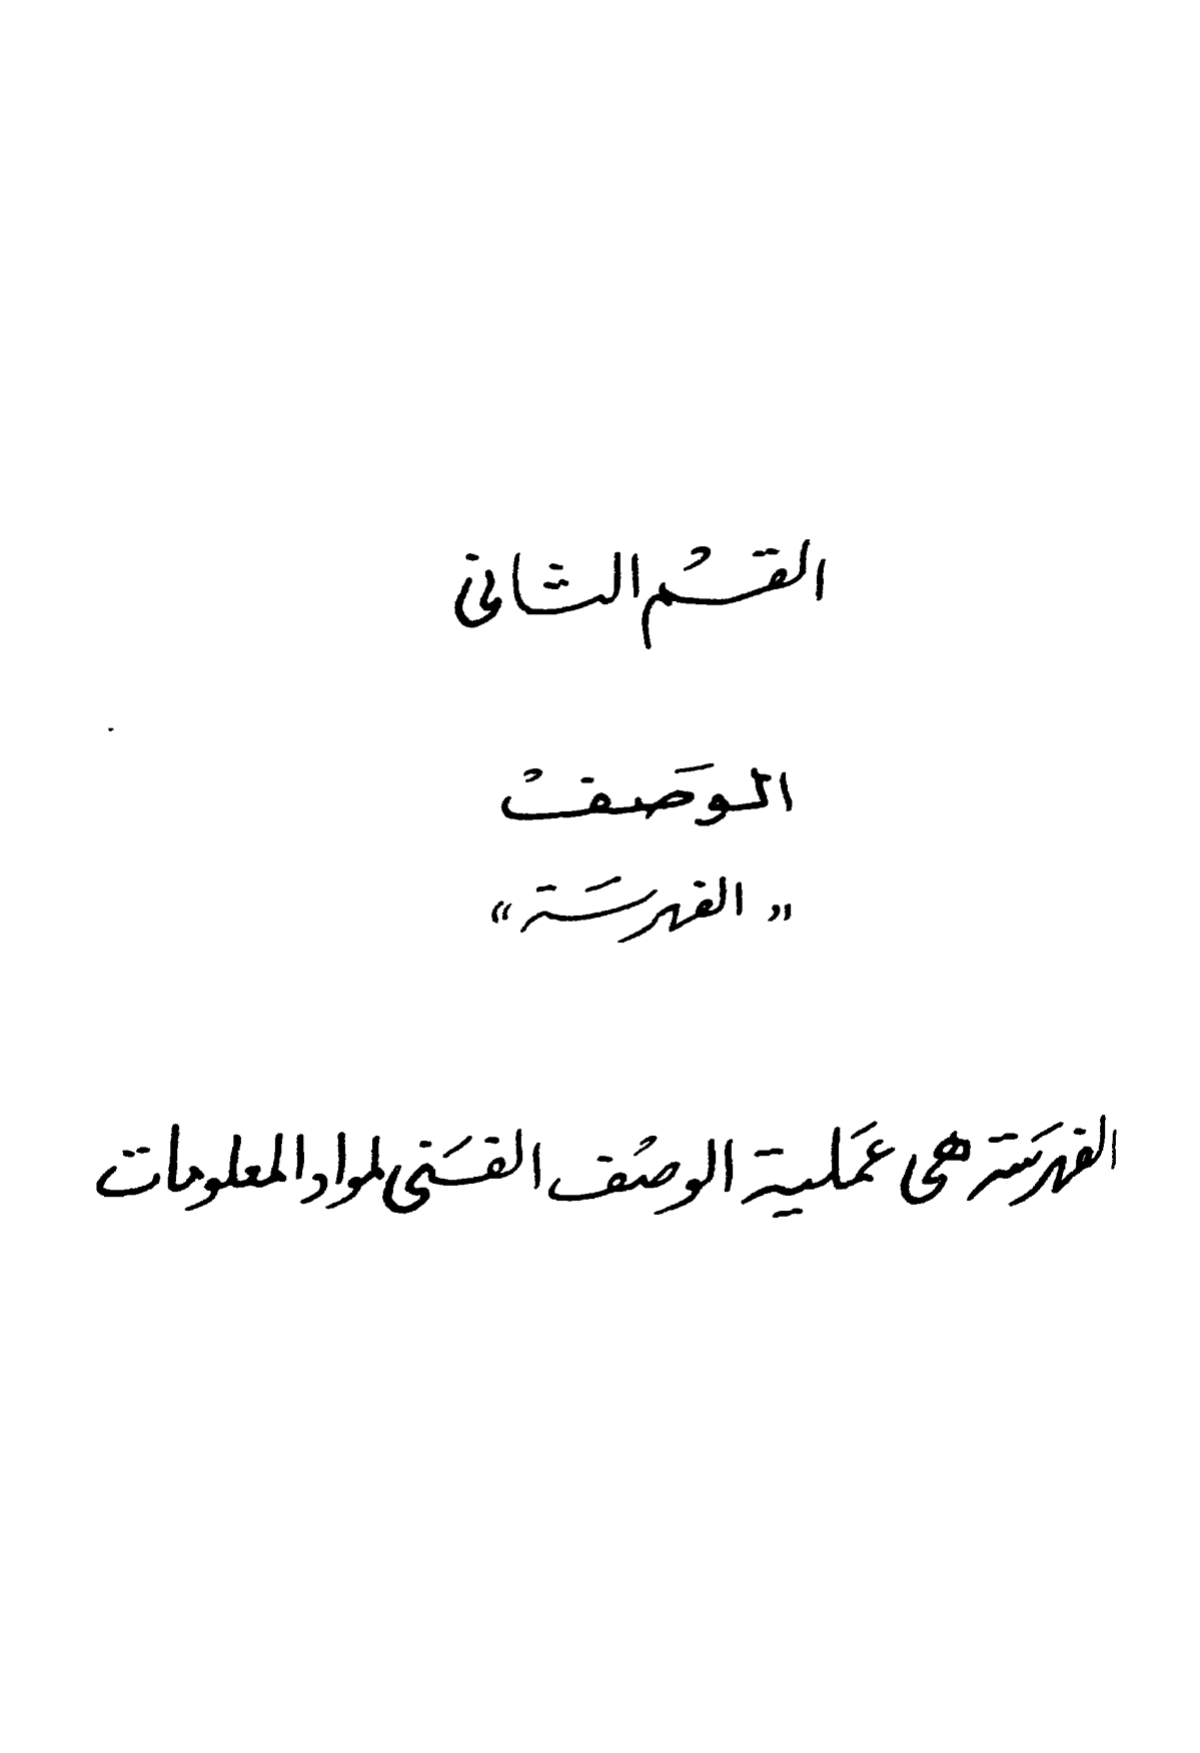 القسْم الثانى
الوَصفْ
« الفهرسَة »
الفهرسَة هى عَملية الوصْف الفَنى لمواد المعلومات